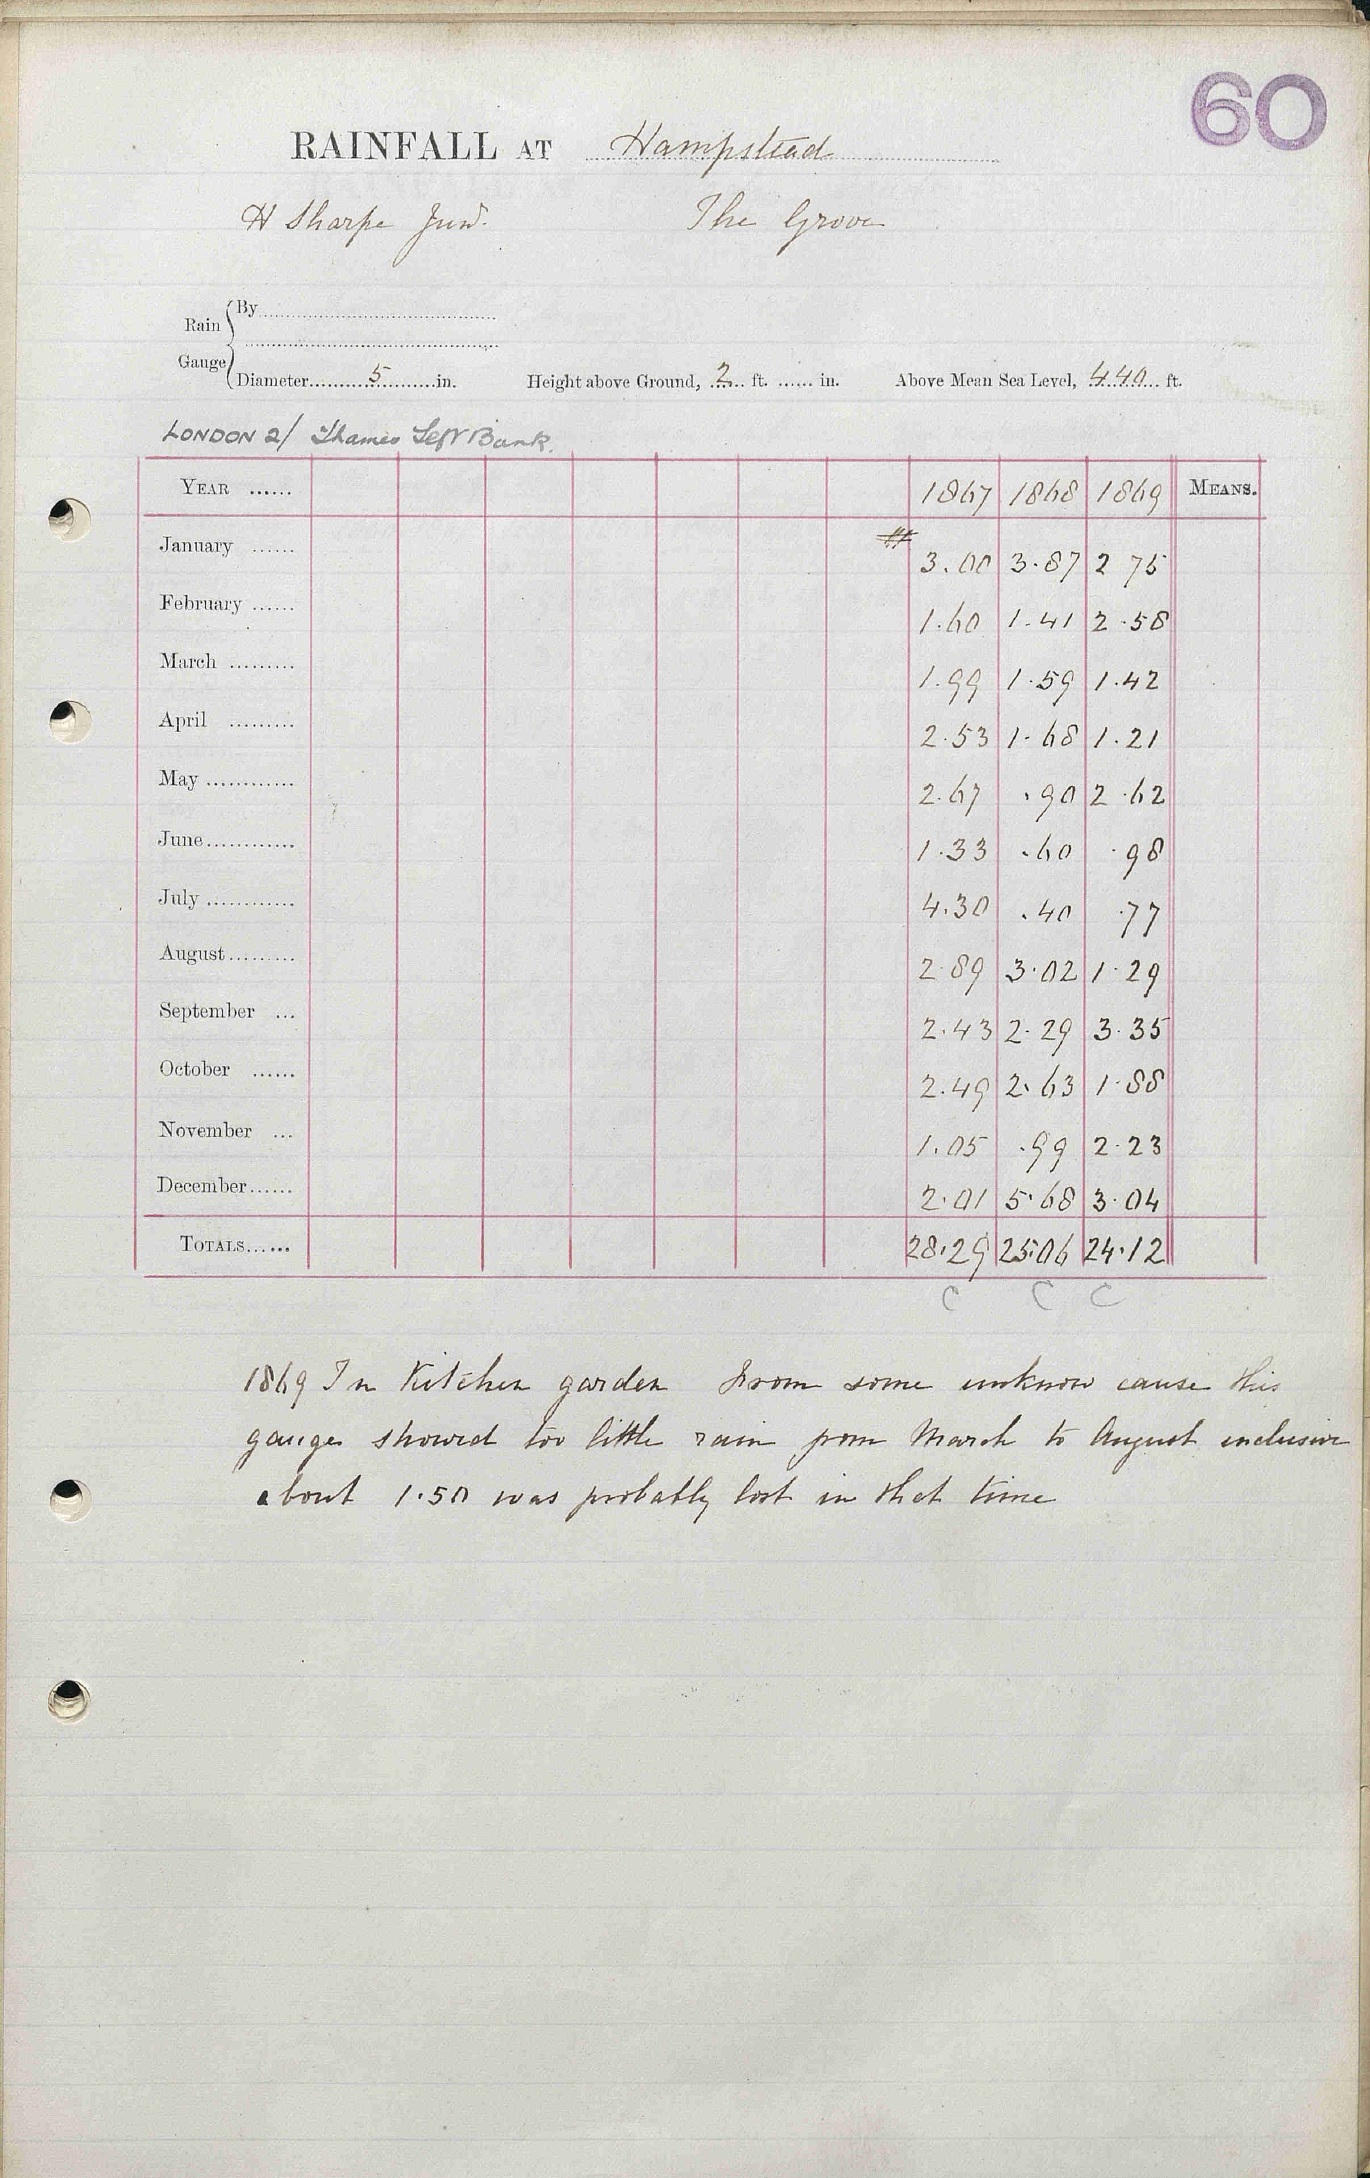 60
RAINFALL AT Hampstead
H Sharpe Junr. The Grove
Rain Gauge
By
Diameter 5 in. Height above Ground, 2 ft. in. Above Mean Sea Level, 440 ft.
LONDON 2/ Thames Left Bank.
YEAR 1867 1868 1869 MEANS.
January 3.00 3.87 2 75
February 1.60 1.41 2.58
March 1.99 1.59 1.42
April 2.53 1.68 1.21
May 2.67 .90 2.62
June 1.33 .60 .98
July 4.30 .40 .77
August 2.89 3.02 1.29
September 2.43 2.29 3.35
October 2.49 2.63 1.88
November 1.05 .99 2.23
December 2.01 5.68 3.04
TOTALS 28.29 25.06 24.12
C C C
1869 In Kitchen garden From some unknow cause this
gauge showed too little rain from March to August inclusive
about 1.50 was probably lost in that time